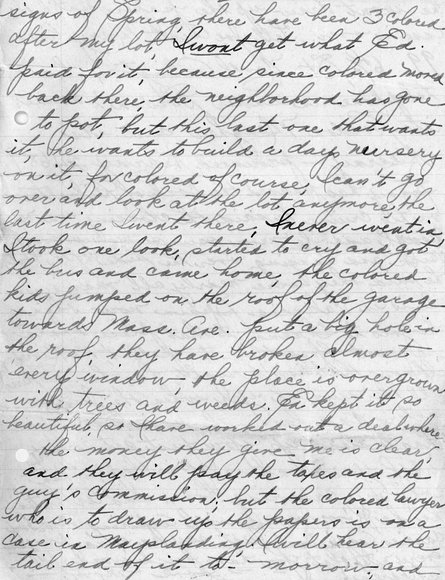 signs of Spring, there have been 3 colored
after my lot, I wont get what Ed.
paid for it, because since colored moved
back there, the neighborhood has gone
to pot, but this last one that wants
it, he wants to build a day nursery
on it, for colored of course, I can't go
over and look at the lot anymore, the
last time I went there, I never went in
I took one look, started to cry and got
the bus and came home, the colored
kids jumped on the roof of the garage
towards Mass. Ave. put a big hole in
the roof, they have broken almost
every window, the place is overgrown
with trees and weeds. Ed kept it so
beautiful, so I have worked out a deal where
the money they give me is clear,
and they will pay the taxes and the
guy's commission, but the colored lawyer
who is to draw up the papers is on a
case in Mayslanding. I will tear the
tail end of it to-morrow, and